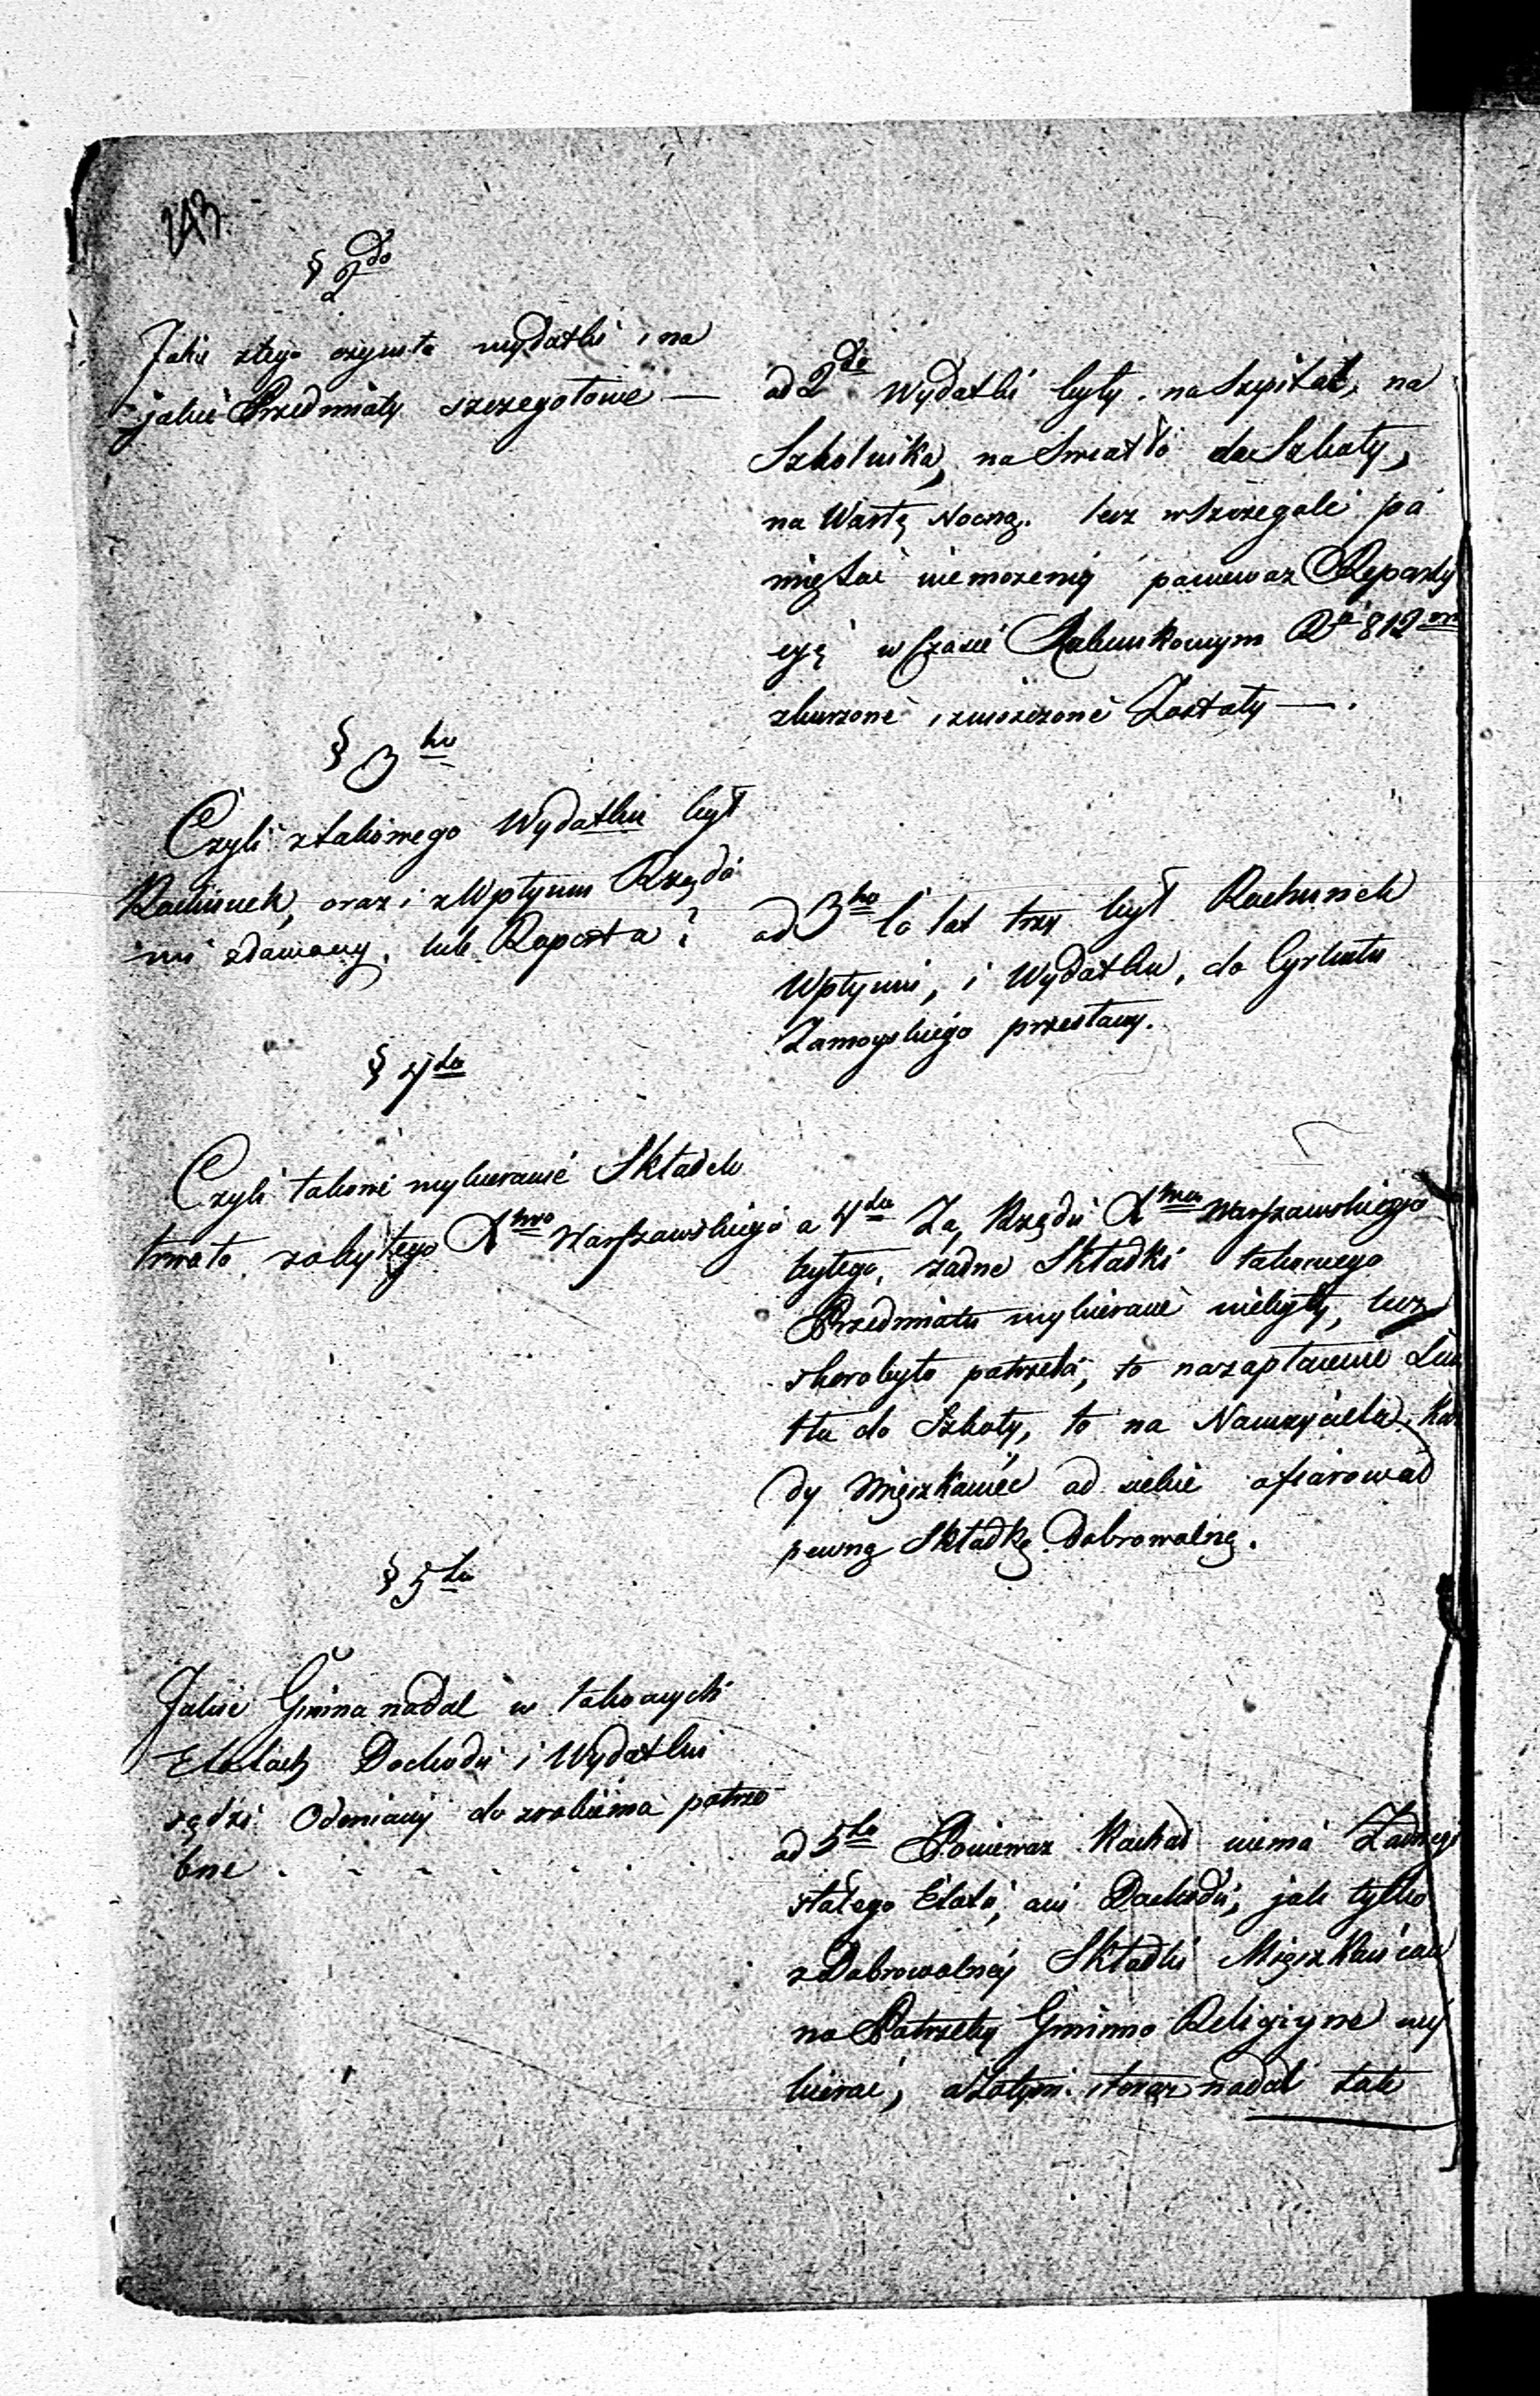 143
§ 2do
Jakie ztego czynito wydatki i na
jakie Przedmioty szczegołowie —
ad 2do Wydatki były na Szpital, na
Szkolnika, na Swiatło do Szkoły,
na Wartę Nocną. lecz wszczegole pa
miętać niemożemy ponieważ Reparty
cyę w Czasie Rabunkowym Ru 812m
zburzone i zniszczone Zostały —.
§ 3tio
Czyli ztakowego Wydatku był
Rachunek, oraz i z Wpływu Rządo
wi zdawany, lub Raporta?
ad 3tio Co lat trzy był Rachunek
Wpływu, i Wydatku, do Cyrkułu
Zamoyskiego przesłany.
§ 4to
Czyli takowe wybieranie Składek
trwało zabytego Xtwa Warszawskiego
a 4to Za Rządu Xtwa Warszawskiego
bytego, żadne Składki takowego
Przedmiotu wybierane niebyły, lecz
skoro było potrzeba, to nazapłacenie
tła do Szkoły, to na Nauczyciela. Każ
dy Mięszkaniec od siebie ofiarował
pewną Składkę Dobrowolnę.
§ 5to
Jakie Gmina nadal w takowych
Etatach Dochodu i Wydatku
sądzi Odmiany do zrobienia potrze
bne . . . . . . . .
ad 5to Ponieważ Kachał niema Żadnego
stałego Etatu, ani Dochodu, jak tylko
z Dobrowolney Składki Mięszkańców
na Potrzeby Gminno Religiyne wy
bierać, a zatym i teraz nadal tak